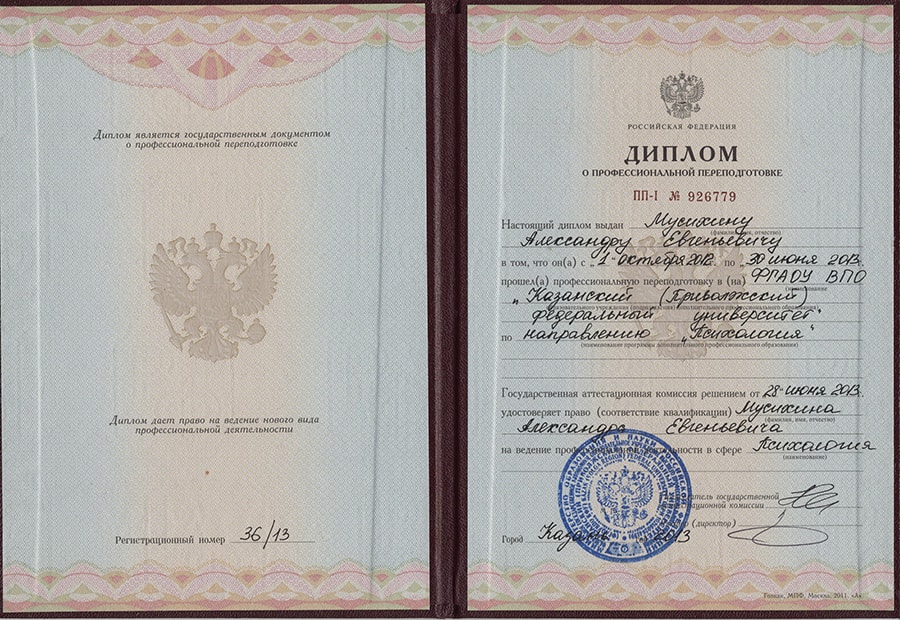 Диплом является государственным документом
о профессиональной переподготовке
Диплом дает право на ведение нового вида
профессиональной деятельности
Регистрационный номер 36/13
РОССИЙСКАЯ ФЕДЕРАЦИЯ
ДИПЛОМ
О ПРОФЕССИОНАЛЬНОЙ ПЕРЕПОДГОТОВКЕ
ПП-I № 926779
Настоящий диплом выдан Мусихину
(фамилия, имя, отчество)
Александру Евгеньевичу
в том, что он(а) с „1" октября 2012 по „30 июня 2013.
прошел(а) профессиональную переподготовку в (на) ФГАОУ ВПО
(наименование
„Казанский (Приволжский)
образовательного учреждения (подразделения) дополнительного профессионального образования)
федеральный университет"
по направлению „Психология"
(наименование программы дополнительного профессионального образования)
Государственная аттестационная комиссия решением от 28" июня 2013.
удостоверяет право (соответствие квалификации) Мусихина
(фамилия, имя, отчество)
Александра Евгеньевича
на ведение профессиональной деятельности в сфере Психология
(наименование)
государственной
комиссии
(директор)
Город Казань 2013
Гознак, МПФ, Москва, 2011, «А».